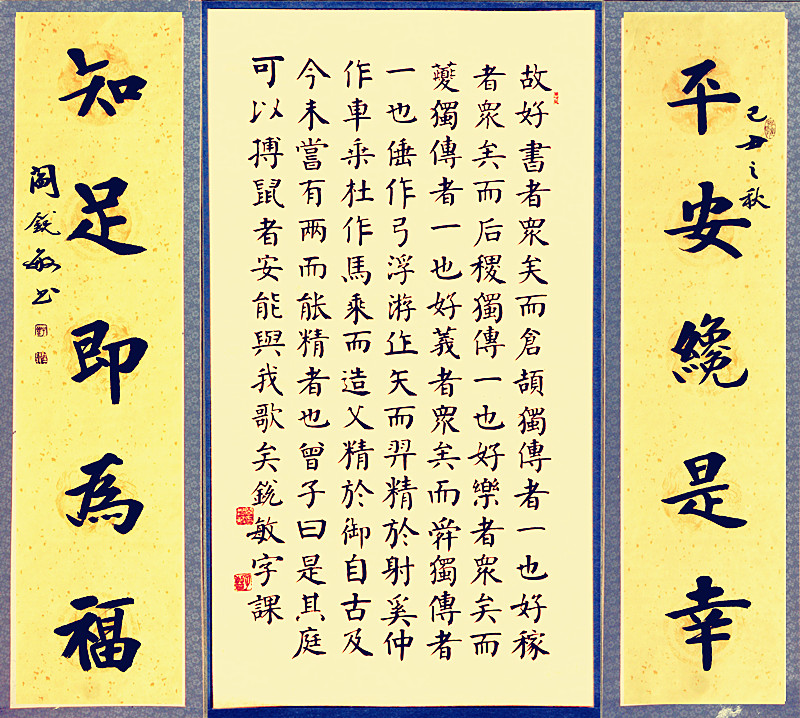 平安纔是幸
己丑之秋
故好書者衆矣而倉頡獨傳者一也好稼
者衆矣而后稷獨傳一也好樂者衆矣而
夔獨傳者一也好義者衆矣而舜獨傳者
一也倕作弓浮游作矢而羿精於射奚仲
作車乘杜作馬乘而造父精於御自古及
今未嘗有两而能精者也曾子曰是其庭
可以搏鼠者安能與我歌矣銳敏字課
知足即為福
閻銳敏书